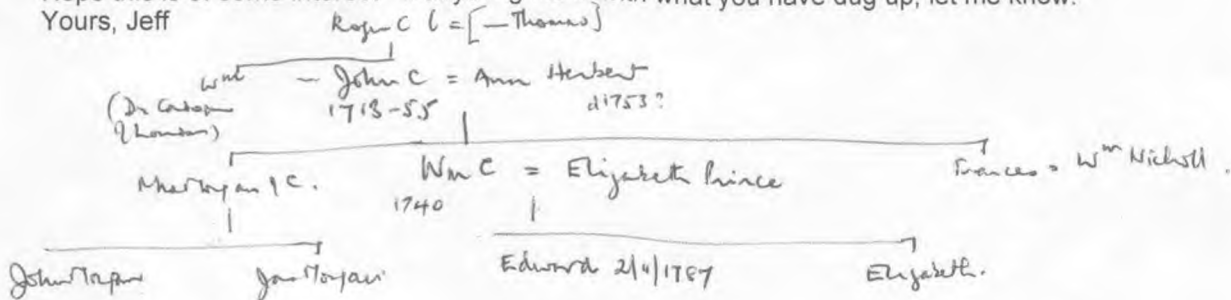 what you have dug up, let me know.
Yours, Jeff
Roger C = [— Thomas]
Wm — John C = Ann Herbert
(Dr
1713-55 d 1753?
Morgan C. Wm C = Elizabeth Prince Frances = Wm Nicholl.
1740
John Morgan Morgan Edward 2/4/1787 Elizabeth.